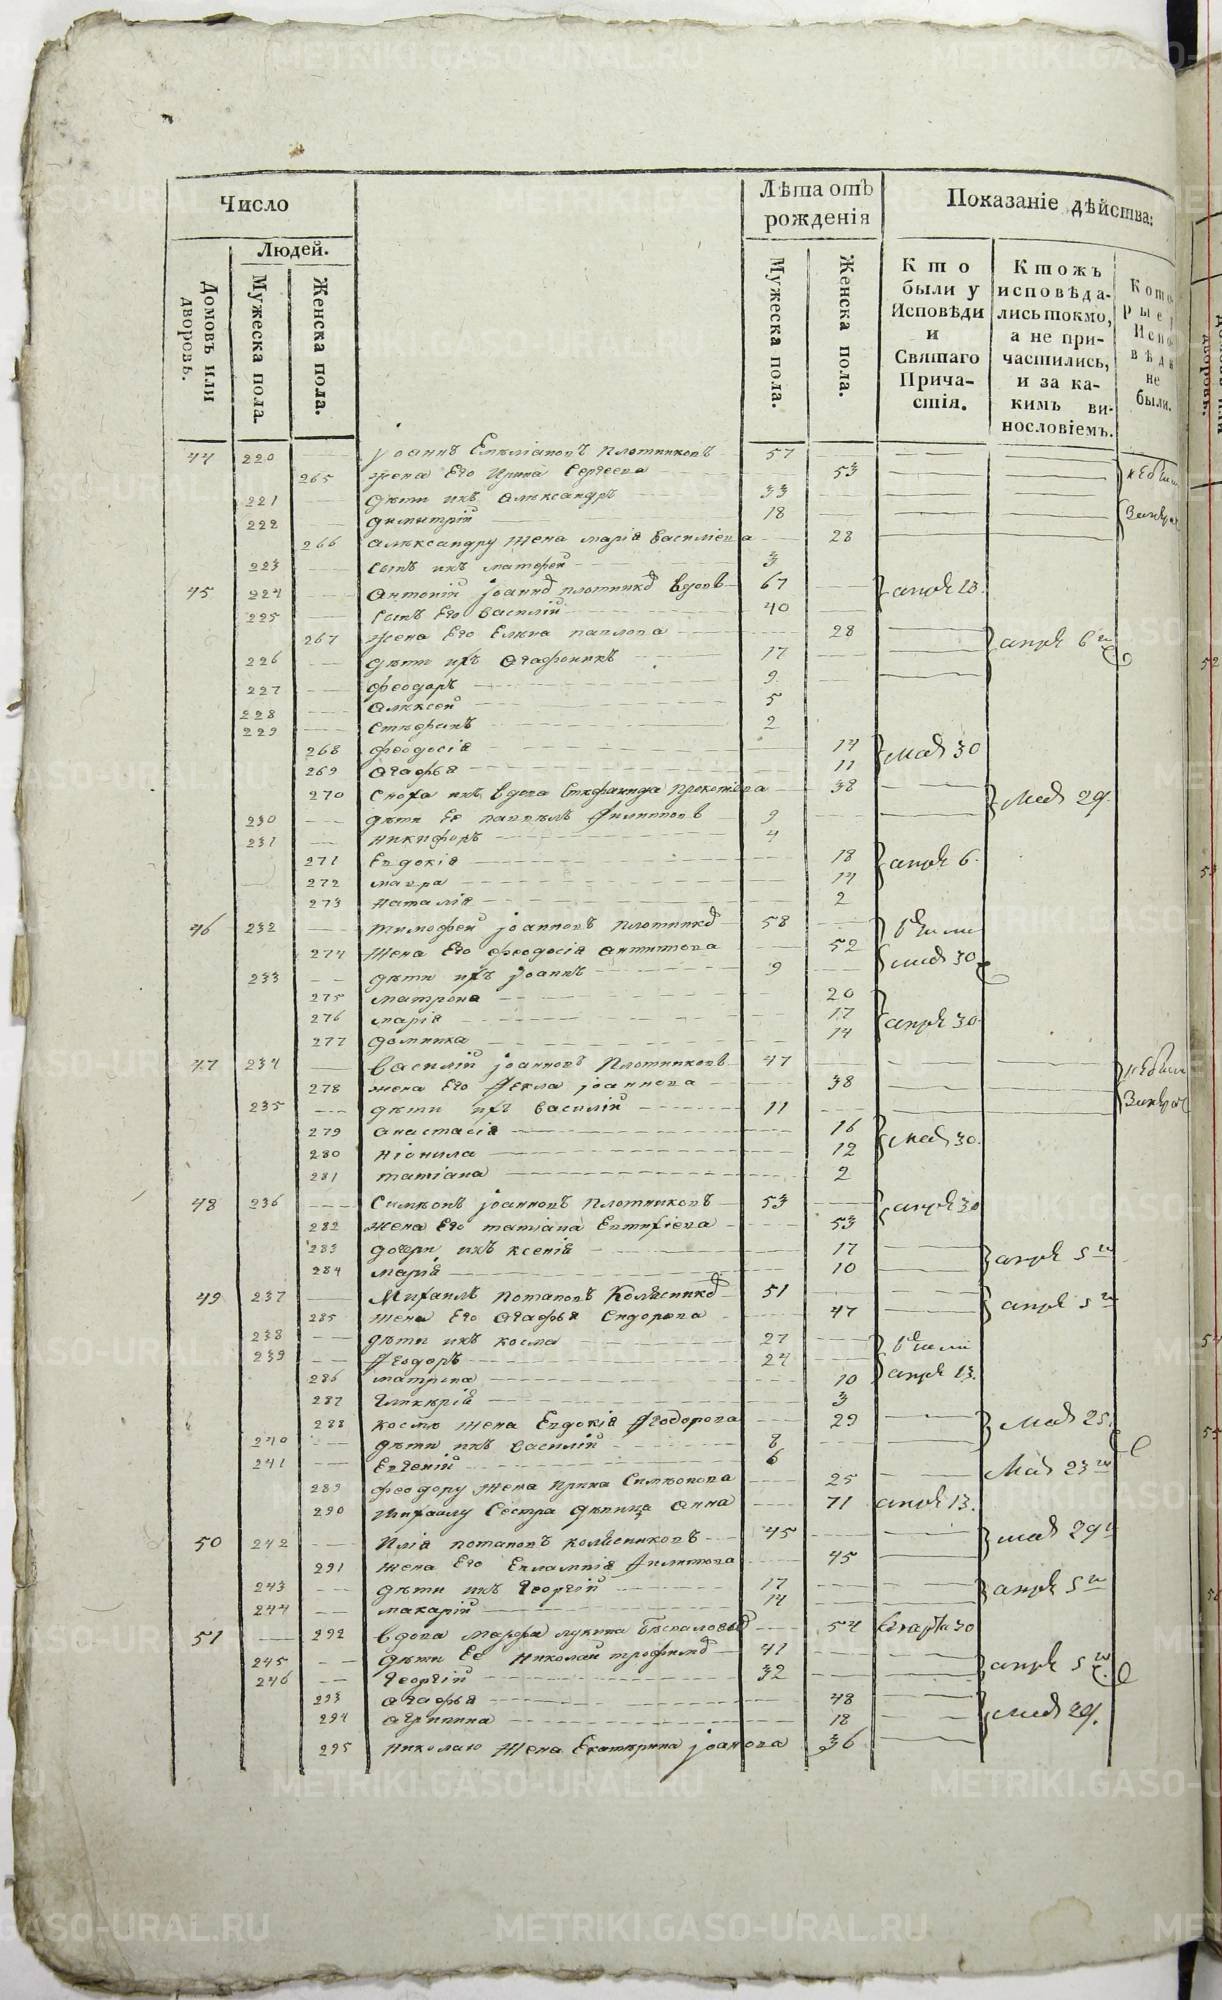 Число
Лѣта отъ рожденія
Показаніе дѣйства:
Людей.
Домовъ или дворовъ.
Мужеска пола.
Женска пола.
Мужеска пола.
Женска пола.
Кто были у Исповѣди и Святаго Причастія.
Ктожъ исповѣдались токмо, а не причастились, и за какимъ винословіемъ.
Которые Исповѣди не были.
44 220 Іоаннъ Емѣліановъ Плотниковъ 57
265 жена Его Ирина Сергеева 53 не были
221 дѣти ихъ Алѣксандръ 33
222 димитрій 18
266 Алѣксандру жена марія василіева 28
223 сынъ ихъ матфей 3
45 224 Антоній Іоанно плотнико вдовъ 67 апрѣ 13.
225 сынъ Его василій 40
267 жена Его Елѣна павлова 28 апрѣ 6
226 дѣти ихъ Агафоникъ 17
227 феодоръ 9
228 Алѣксей 5
229 стѣфанъ 2
268 феодосія 14 маія 30
269 Агафья 11
270 сноха ихъ вдова Стѣфанида Прокопіева 38 маія 29.
230 дѣти Ее павѣлъ Филиповъ 9
231 никифоръ 4
271 Евдокія 18 апрѣ 6.
272 мавра 14
273 наталія 2
46 232 тимофей Іоанновъ плотнико 58
274 жена Его феодосія антипова 52 маія 30
233 дѣти ихъ Іоаннъ 9
275 матрона 20
276 марія 17 апрѣ 30.
277 домника 14
47 234 василій Іоанновъ Плотниковъ 47 не были
278 жена Его Фекла Іоаннова 38
235 дѣти ихъ василій 11
279 анастасія 16 маія 30.
280 ніонила 12
281 татіана 2
48 236 Симѣонъ Іоанновъ плотниковъ 53 апрѣ 30
282 жена Его татіана Евтихіева 53
283 дочери ихъ ксенія 17 апрѣ 5
284 марія 10
49 237 Михаилъ потаповъ Колѣснико 51 апрѣ 5
285 жена Его Агафья Сидорова 47
238 дѣти ихъ косма 27
239 Феодоръ 24 апрѣ 13.
286 матрона 10
287 Гликѣрія 3
288 космы жена Евдокія Феодорова 29 маія 25.
240 дѣти ихъ василій 8
241 Евгеній 6 маія 23
289 феодору жена Ирина Симѣонова 25
290 михаилу Сестра дѣвица Анна 71 апрѣ 13.
50 242 Илія потаповъ колѣсниковъ 45 маія 29
291 жена Его Евлампія Филипова 45
243 дѣти ихъ Георгій 17 апрѣ 5
244 макарій 14
51 292 вдова марфа лукина 54 марта 30
245 дѣти Ее николай трофимо 41 апрѣ 5
246 Георгій 32
293 Агафья 48 маія 29.
294 Агрипина 18
295 николаю жена Екатѣрина Іоанова 36